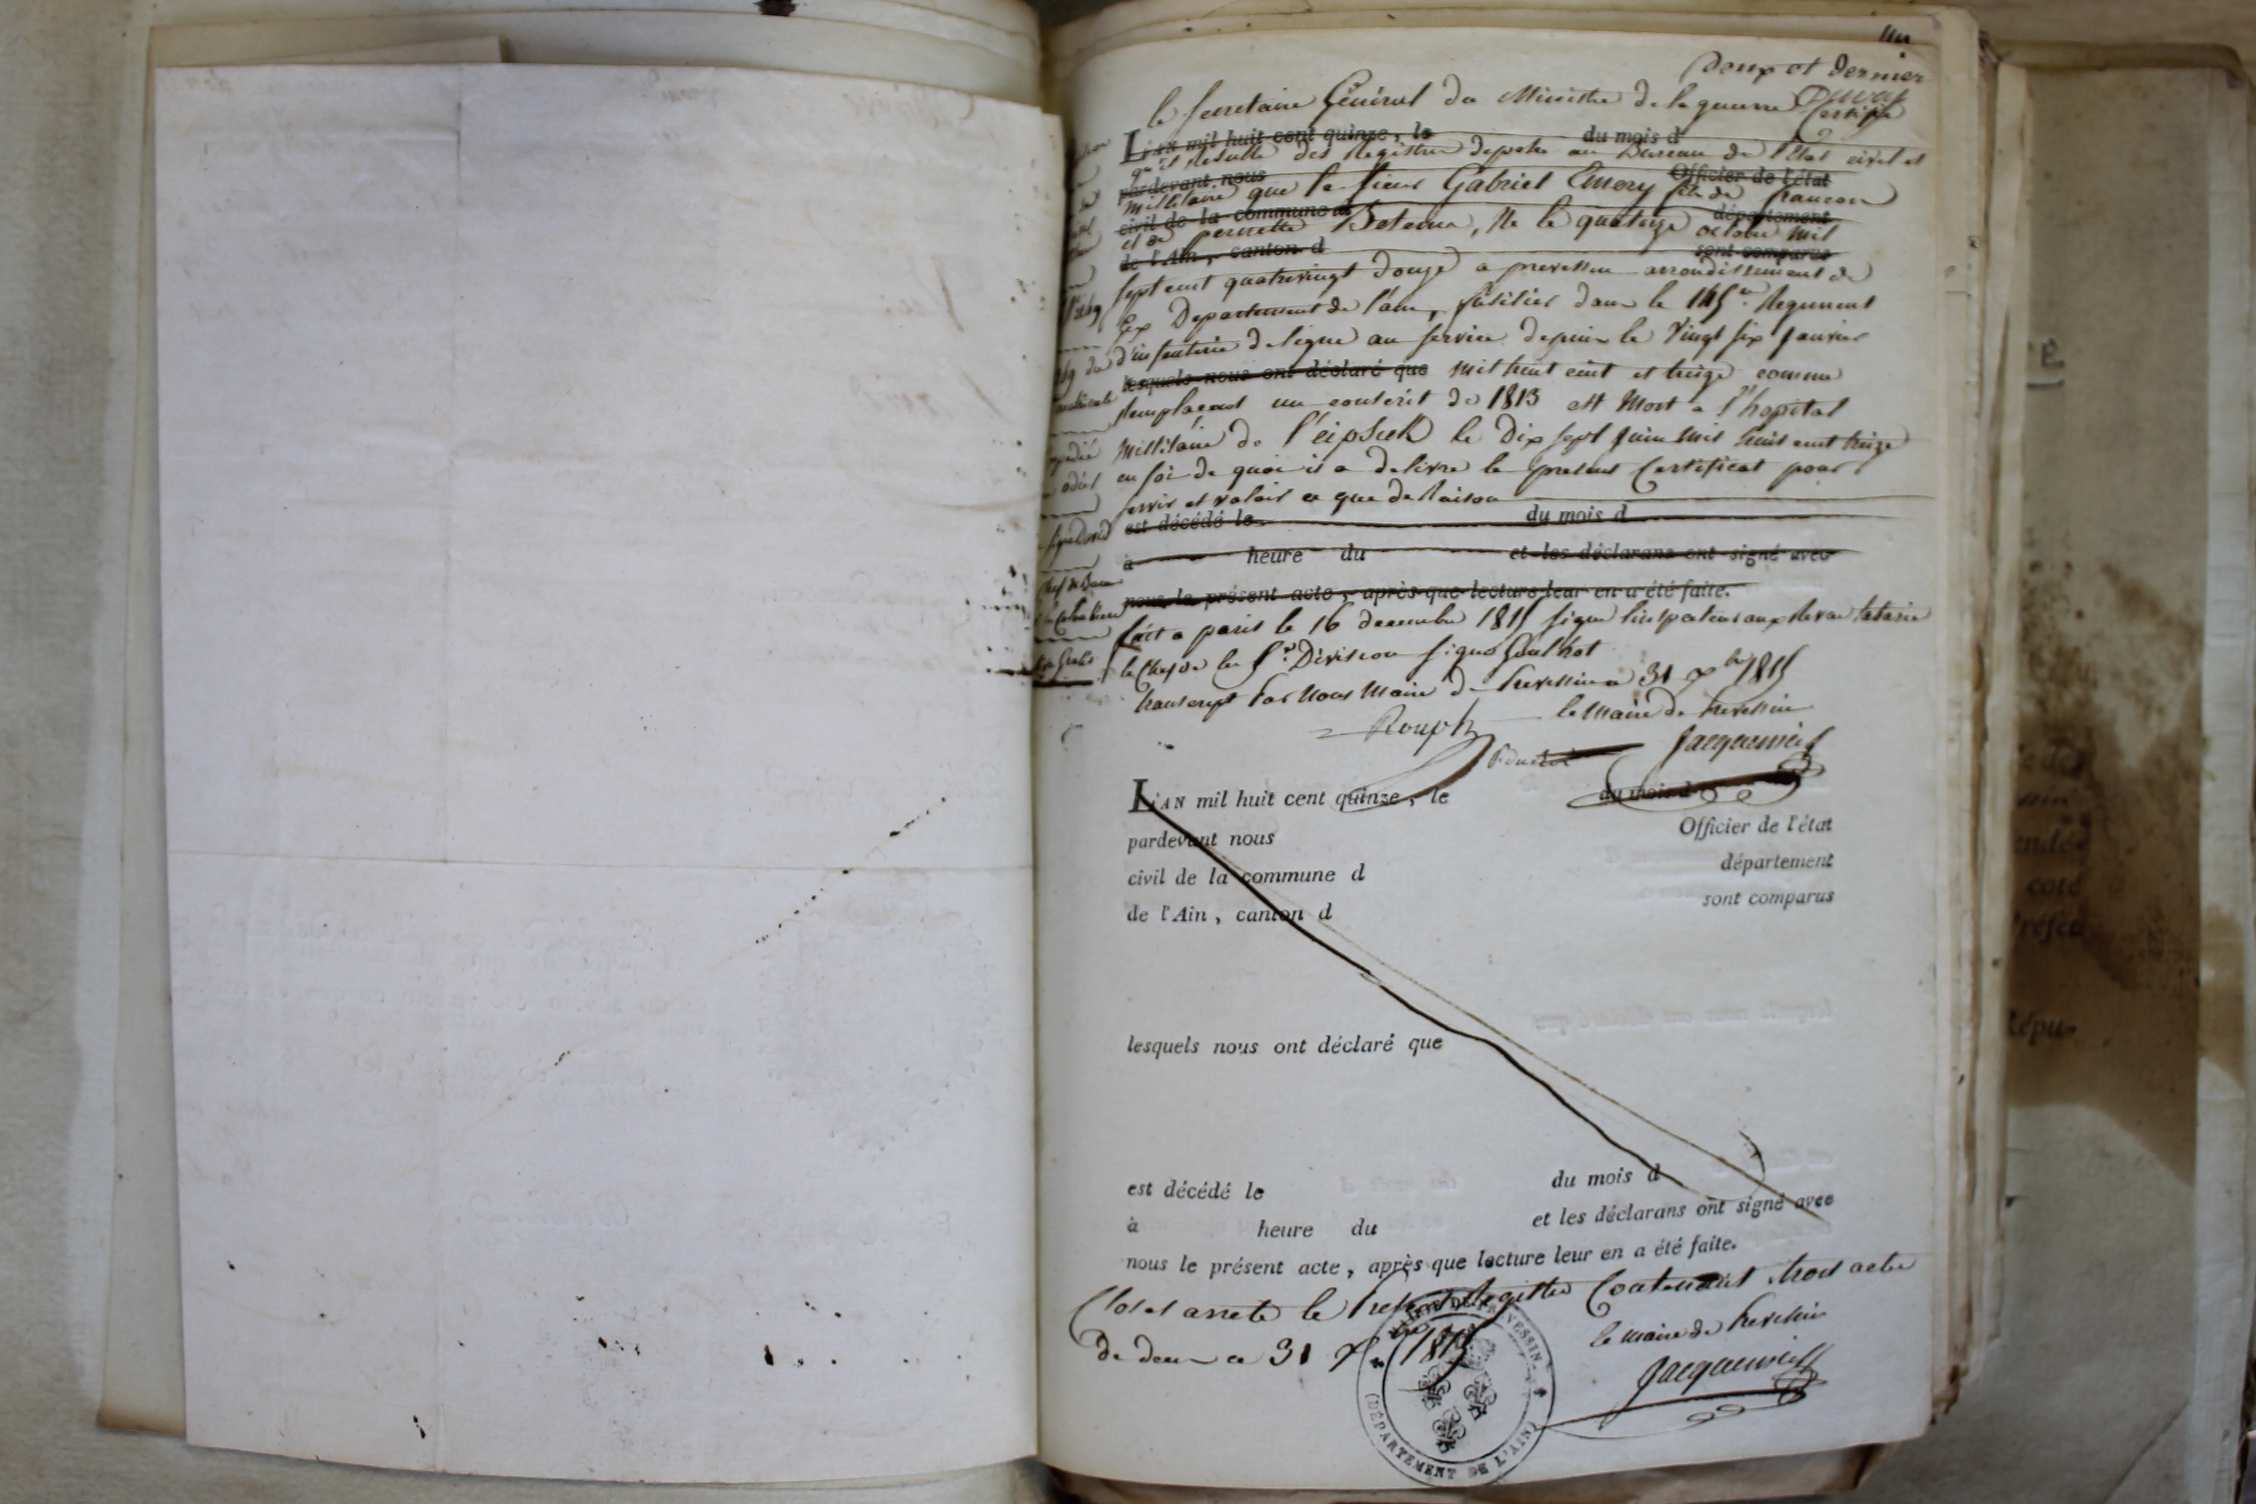 Deux et dernier
Duval
le secretaire Général du Ministre de la guerre Certifie
L'AN mil huit cent quinze, le du mois d
qu'il Resulte des Registres deposés au Bureau de l'Etat civil et
pardevant nous Officier de l'état
militaire que le sieur Gabriel Emery fils de francois
civil de la commune d département
et de pernette Betems, Né le quatorze octobre mil
de l'Ain, canton d sont comparus
sept cent quatrevingt douze a prevessin arrondissement de
Gex Departement de l'ain, fusilier dans le 145e Regiment
d'infanterie de ligne au service depuis le Vingt six Janvier
lesquels nous ont déclaré que mil huit cent et treize comme
Remplacant un conscrit de 1813 est Mort a l'hopital
Militaire de l'eipsick le Dix sept Juin mil huit cent treize
en foi de quoi il a delivré le present Certificat pour
servir et valoir ce que de Raison
est décédé le du mois d
à heure du et les déclarans ont signé avec
nous le présent acte, après que lecture leur en a été faite.
fait a paris le 16 decembre 1815 signé l'inspecteur aux Revues
le Chef de la 5e Division signé Goulhot
transcript Par Nous Maire de Prevessin a 31 Xbre 1815
le Maire de Prevessin
Rouph
Jacquemier
L'AN mil huit cent quinze, le du mois d
pardevant nous Officier de l'état
civil de la commune d département
de l'Ain, canton d sont comparus
lesquels nous ont déclaré que
est décédé le du mois d
à heure du et les déclarans ont signé avec
nous le présent acte, après que lecture leur en a été faite.
Clos et arreté le Present Registre Contenant trois actes
de deces ce 31 Xbre 1815
le maire de Prevessin
Jacquemier
MAIRIE DE PREVESSIN
(DÉPARTEMENT DE L'AIN)